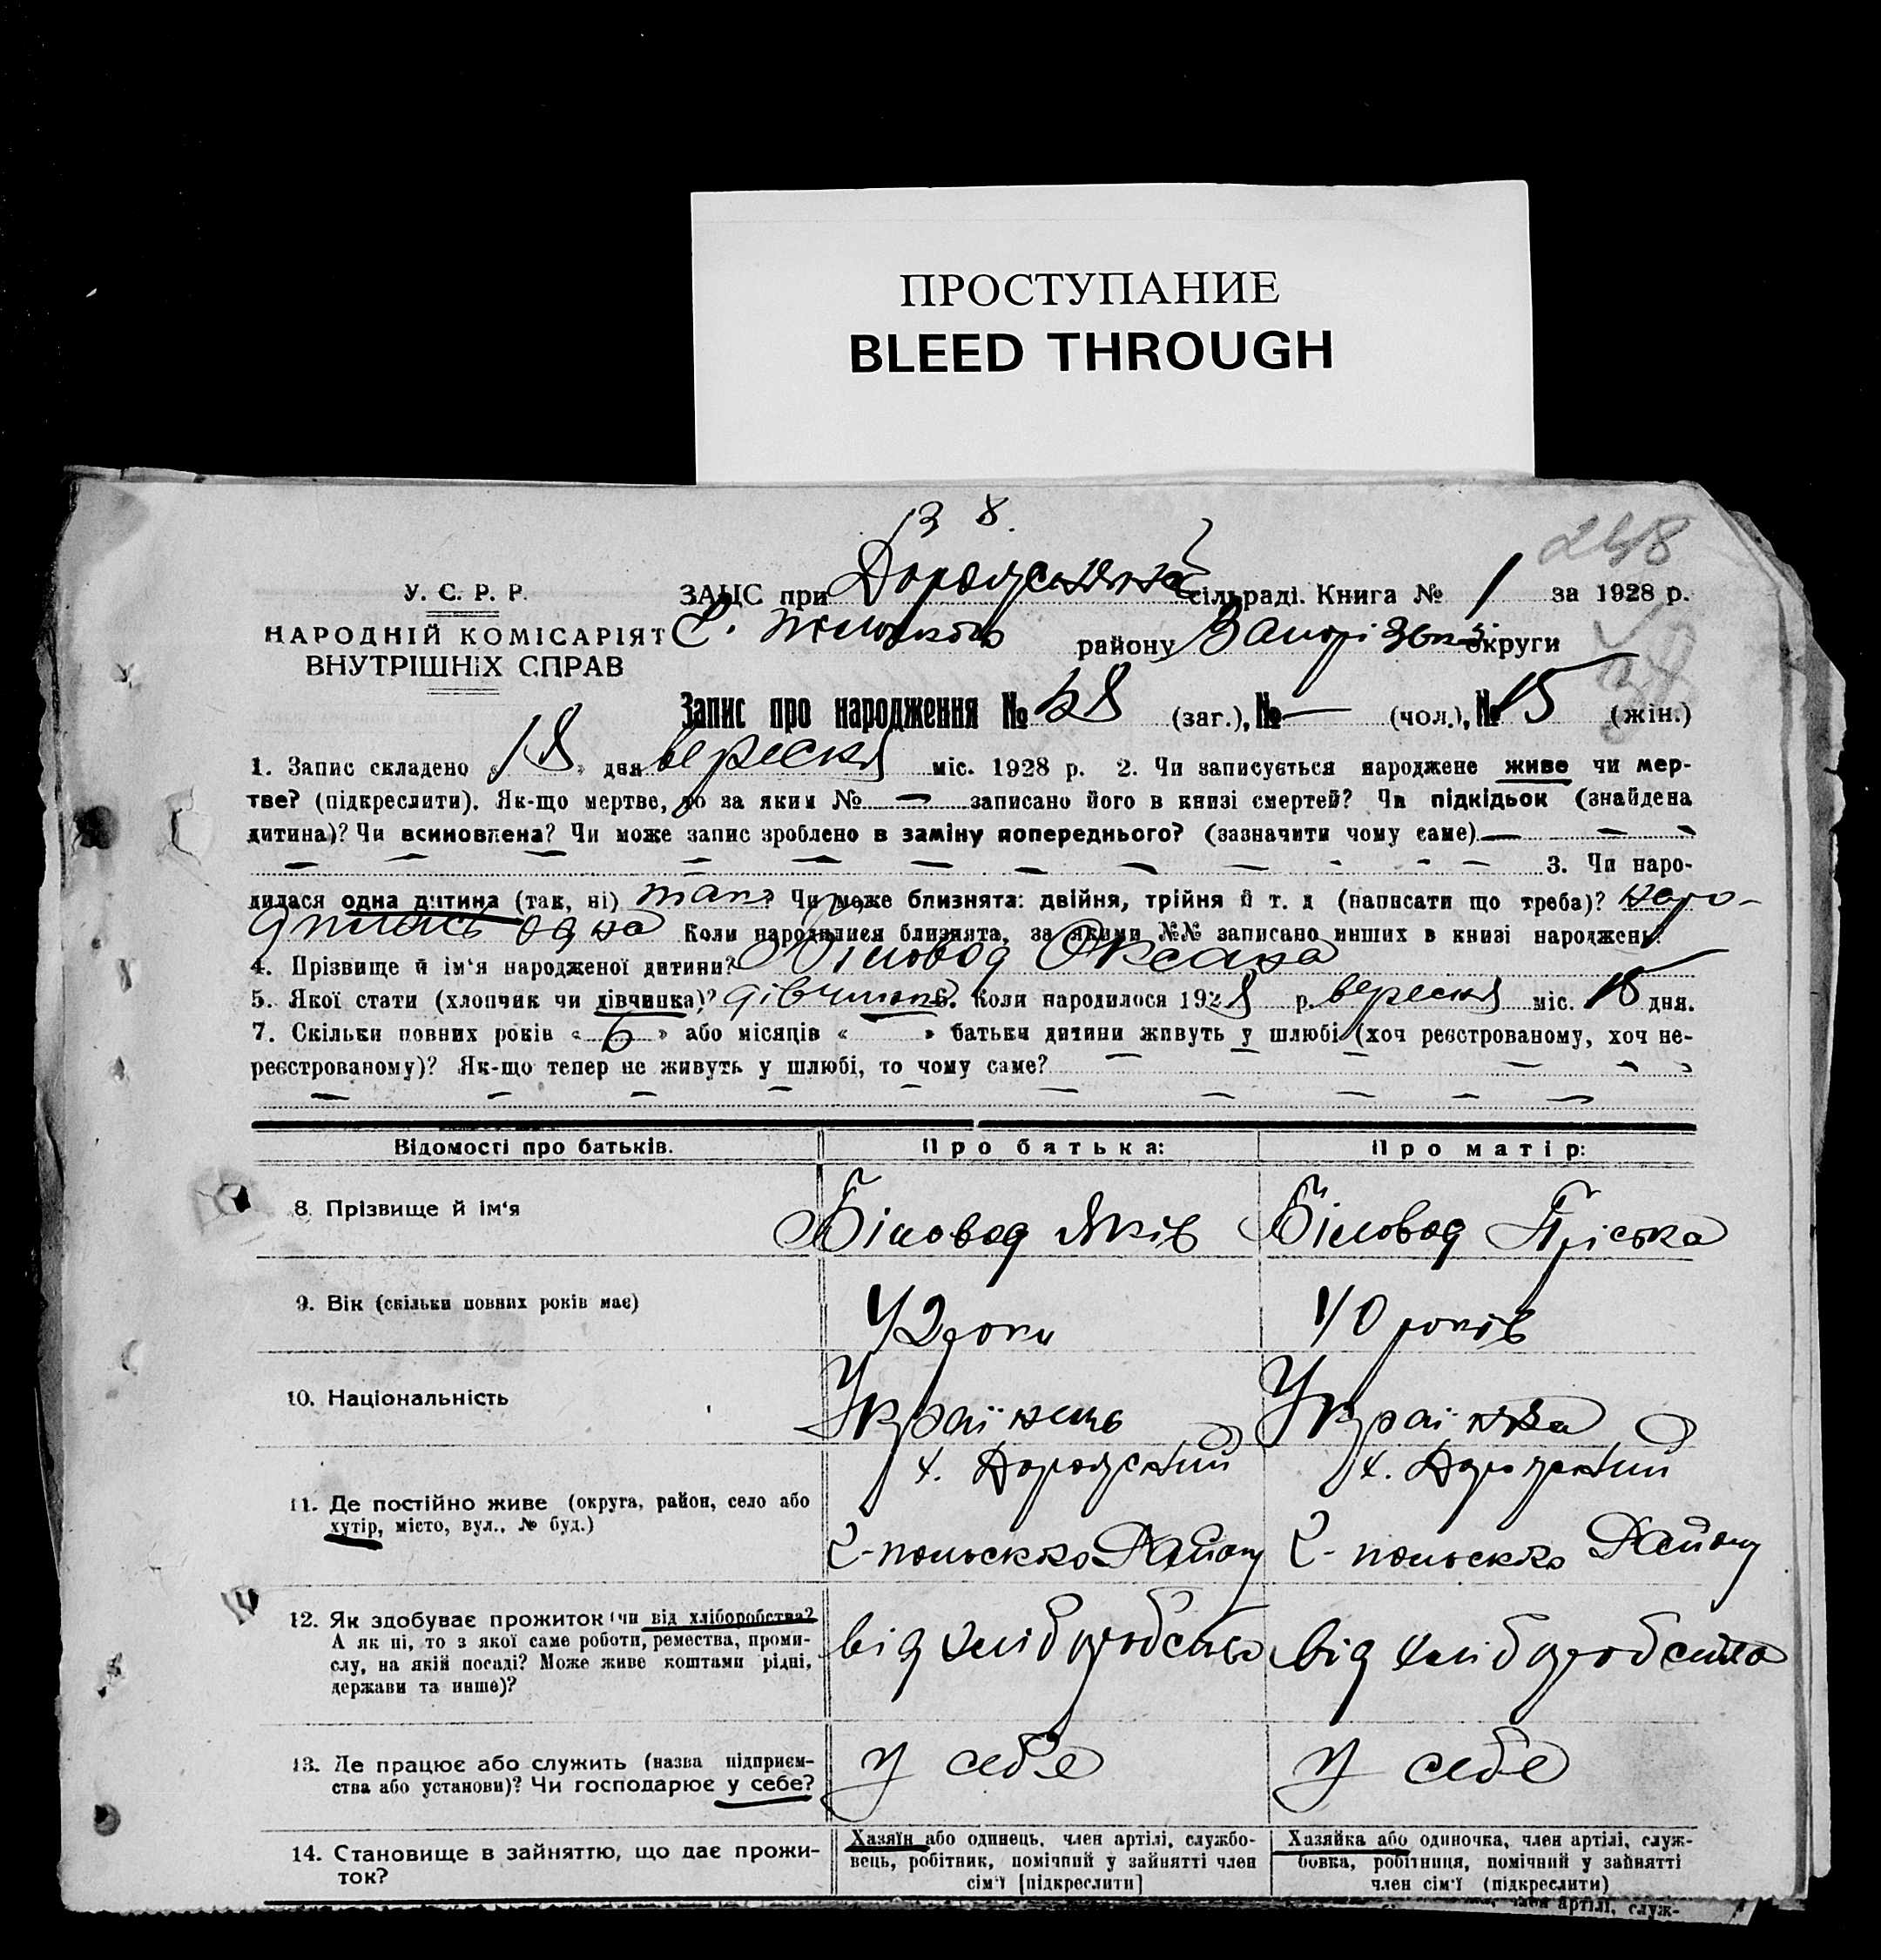 ПРОСТУПАНИЕ
BLEED THROUGH
248
У. С. Р. Р.
НАРОДНІЙ КОМІСАРІЯТ
ВНУТРІШНІХ СПРАВ
ЗАЦС при сільраді. Книга № 1 за 1928 р.
району Запорізької округи
Запис про народження № (заг.), № — (чол.), № 15 (жін.)
1. Запис складено «18» дня вересня міс. 1928 р. 2. Чи записується народжене живе чи мер-
тве? (підкреслити). Як-що мертве, то за яким № — записано його в книзі смертей? Чи підкідьок (знайдена
дитина)? Чи всиновлена? Чи може запис зроблено в заміну попереднього? (зазначити чому саме) — — —
— — — — — — — — — — — — 3. Чи наро-
дилася одна дитина (так, ні) так? Чи може близнята: двійня, трійня й т. д (написати що треба)? наро-
дилась одна Коли народилися близнята, за якими №№ записано инших в книзі народжень?
4. Прізвище й ім'я народженої дитини? Біловод Оксана
5. Якої стати (хлопчик чи дівчинка)? дівчинка 6. Коли народилося 1928 р. вересня міс. 18 дня.
7. Скільки повних років «6» або місяців « » батьки дитини живуть у шлюбі (хоч реєстрованому, хоч не-
реєстрованому)? Як-що тепер не живуть у шлюбі, то чому саме?
Відомості про батьків. Про батька: Про матір:
8. Прізвище й ім'я Біловод Яків Біловод Пріська
9. Вік (скільки повних років має) 42 роки 40 років
10. Національність Українець Українка
11. Де постійно живе (округа, район, село або
хутір, місто, вул., № буд.)
х. х.
району району
12. Як здобуває прожиток (чи від хліборобства?
А як ні, то з якої саме роботи, ремества, проми-
слу, на якій посаді? Може живе коштами рідні,
держави та инше)?
від хліборобства від хліборобства
13. Де працює або служить (назва підприєм-
ства або установи)? Чи господарює у себе?
у себе у себе
14. Становище в зайняттю, що дає прожи-
ток?
Хазяїн або одинець, член артілі, службо-
вець, робітник, помічний у зайнятті член
сім'ї [підкреслити]
Хазяйка або одиночка, член артілі, служ-
бовка, робітниця, помічний у зайнятті
член сім'ї (підкреслити)
член артілі, служ-